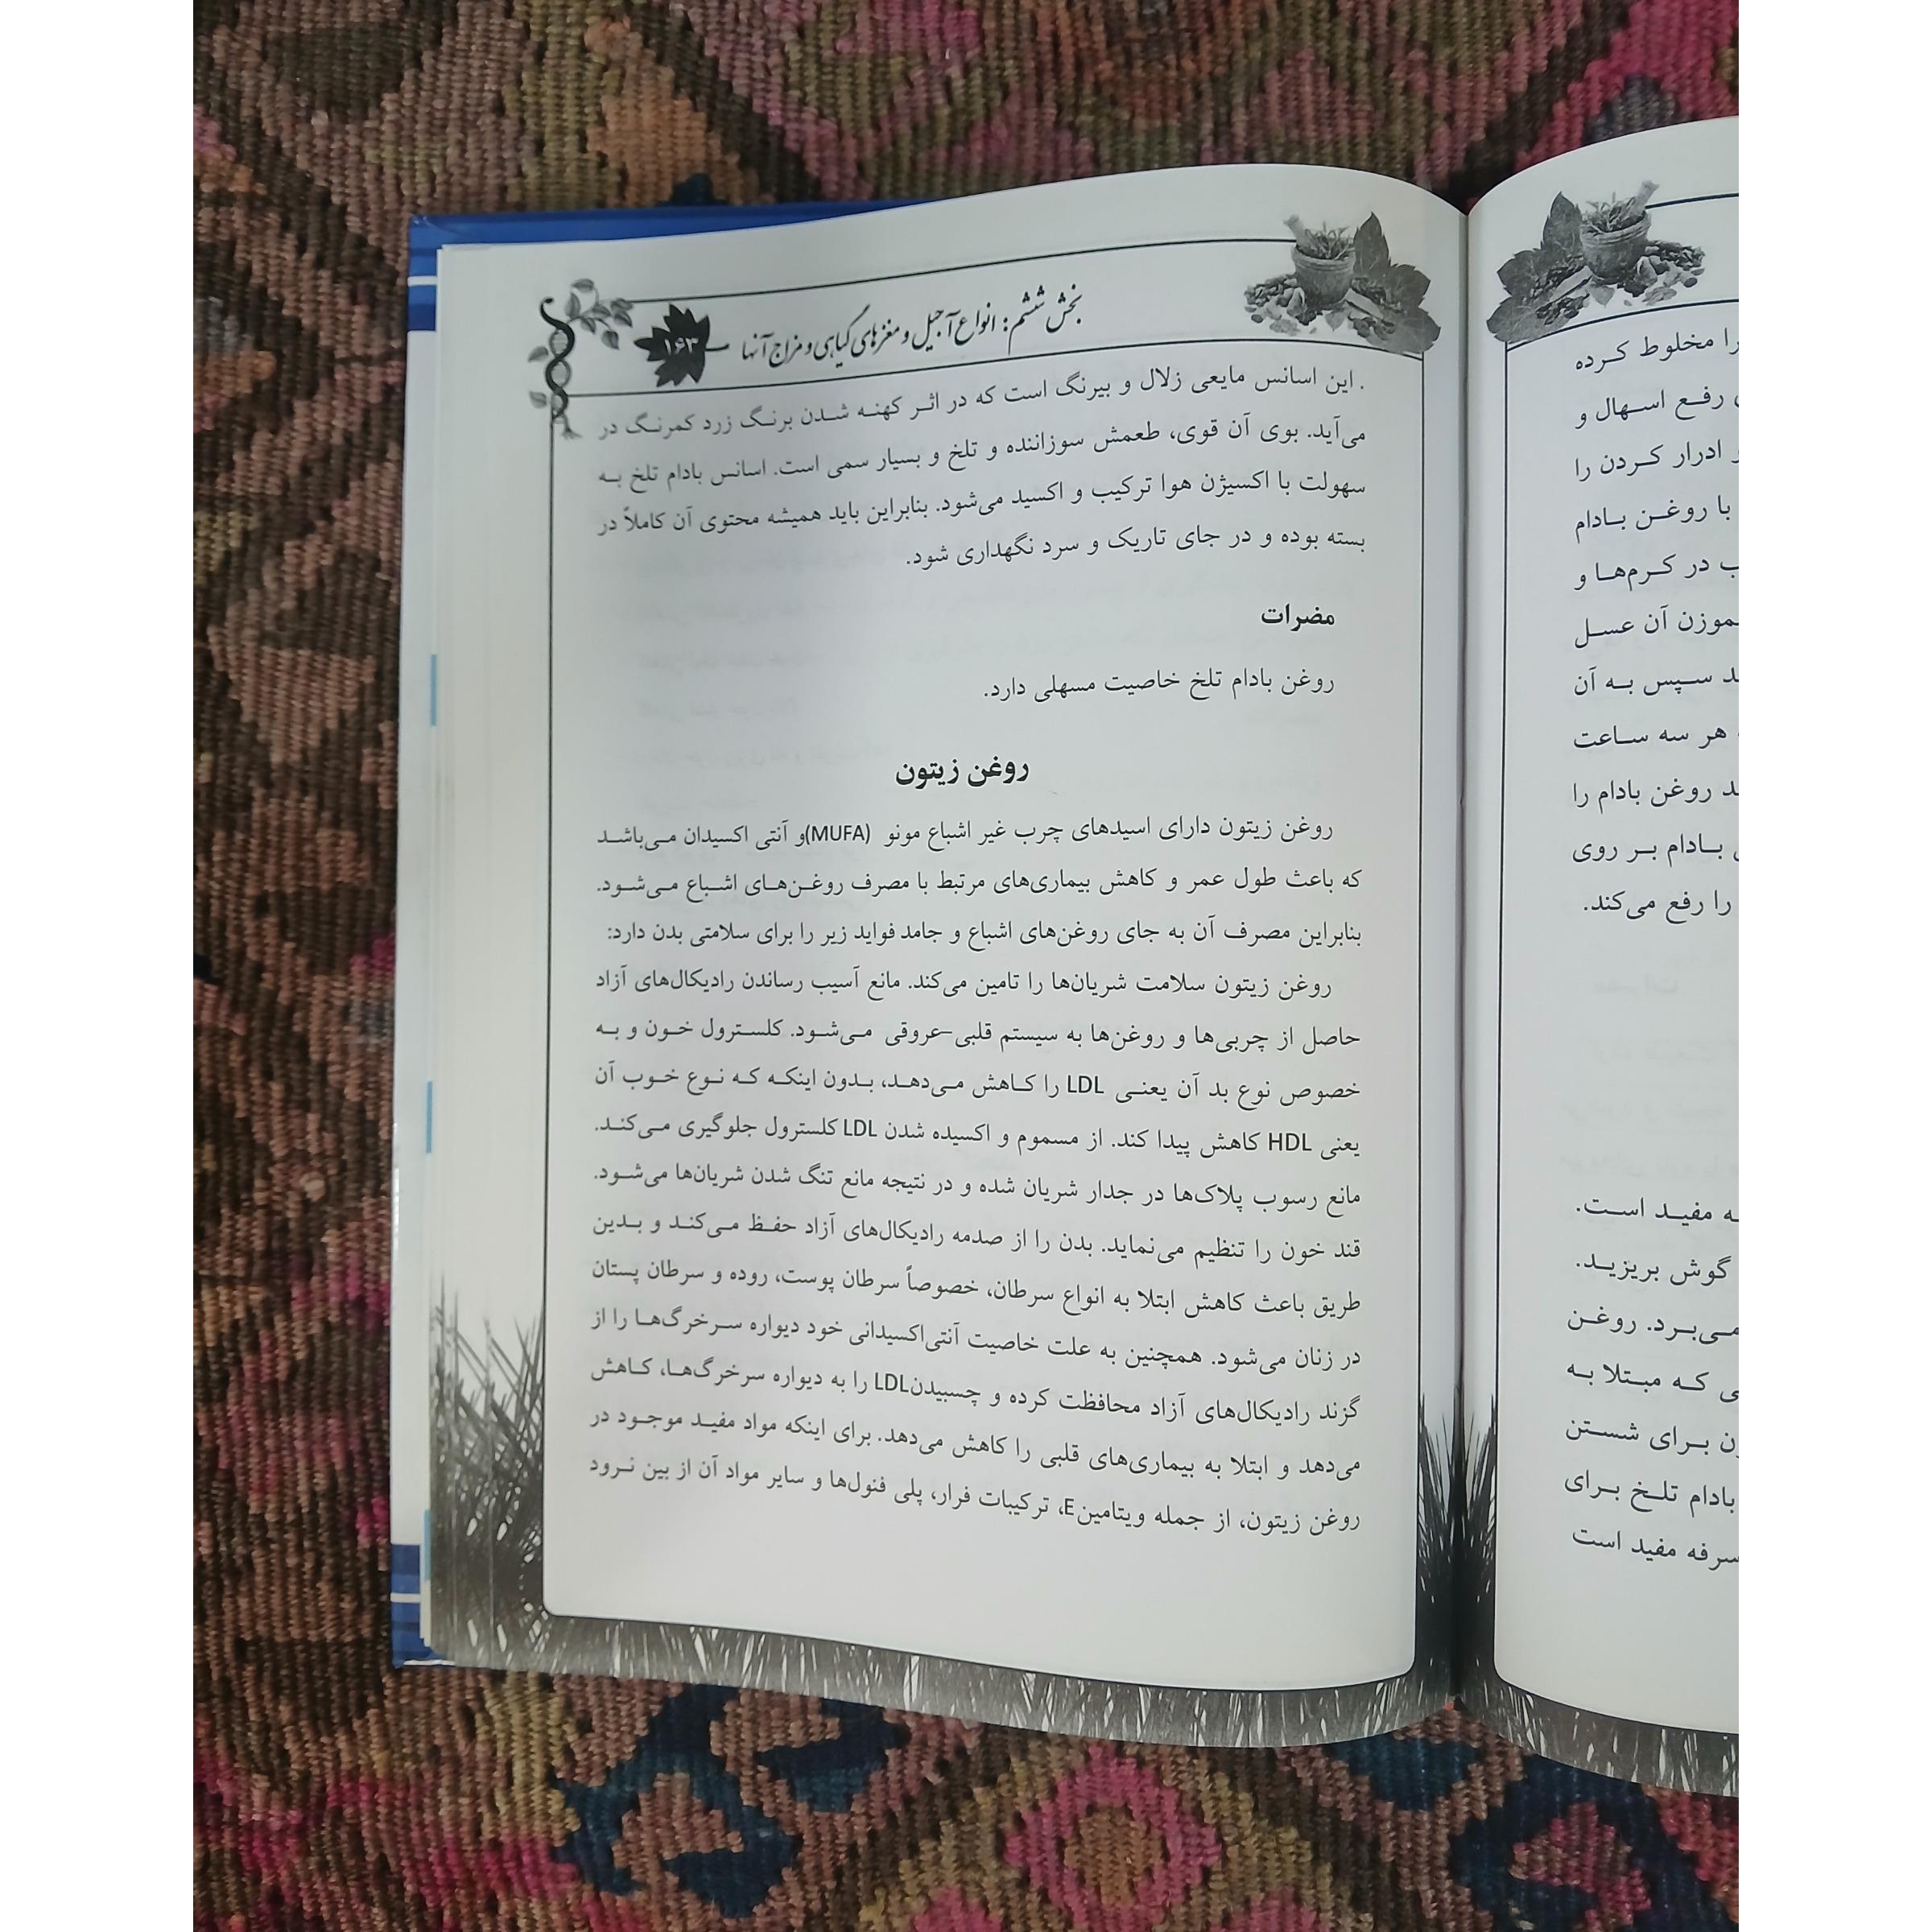 بخش ششم: انواع آجیل و مغزهای گیاهی و مزاج آنها ۱۶۳
. این اسانس مایعی زلال و بیرنگ است که در اثر کهنه شدن برنگ زرد کمرنگ در
می‌آید. بوی آن قوی، طعمش سوزاننده و تلخ و بسیار سمی است. اسانس بادام تلخ به
سهولت با اکسیژن هوا ترکیب و اکسید می‌شود. بنابراین باید همیشه محتوی آن کاملاً در
بسته بوده و در جای تاریک و سرد نگهداری شود.
مضرات
روغن بادام تلخ خاصیت مسهلی دارد.
روغن زیتون
روغن زیتون دارای اسیدهای چرب غیر اشباع مونو (MUFA)و آنتی اکسیدان می‌باشد
که باعث طول عمر و کاهش بیماری‌های مرتبط با مصرف روغن‌های اشباع می‌شود.
بنابراین مصرف آن به جای روغن‌های اشباع و جامد فواید زیر را برای سلامتی بدن دارد:
روغن زیتون سلامت شریان‌ها را تامین می‌کند. مانع آسیب رساندن رادیکال‌های آزاد
حاصل از چربی‌ها و روغن‌ها به سیستم قلبی–عروقی می‌شود. کلسترول خون و به
خصوص نوع بد آن یعنی LDL را کاهش می‌دهد، بدون اینکه که نوع خوب آن
یعنی HDL کاهش پیدا کند. از مسموم و اکسیده شدن LDL کلسترول جلوگیری می‌کند.
مانع رسوب پلاک‌ها در جدار شریان شده و در نتیجه مانع تنگ شدن شریان‌ها می‌شود.
قند خون را تنظیم می‌نماید. بدن را از صدمه رادیکال‌های آزاد حفظ می‌کند و بدین
طریق باعث کاهش ابتلا به انواع سرطان، خصوصاً سرطان پوست، روده و سرطان پستان
در زنان می‌شود. همچنین به علت خاصیت آنتی‌اکسیدانی خود دیواره سرخرگ‌ها را از
گزند رادیکال‌های آزاد محافظت کرده و چسبیدنLDL را به دیواره سرخرگ‌ها، کاهش
می‌دهد و ابتلا به بیماری‌های قلبی را کاهش می‌دهد. برای اینکه مواد مفید موجود در
روغن زیتون، از جمله ویتامینE، ترکیبات فرار، پلی فنول‌ها و سایر مواد آن از بین نرود
را مخلوط کرده
رفع اسهال و
ادرار کردن را
با روغن بادام
در کرم‌ها و
آن عسل
سپس به آن
هر سه ساعت
روغن بادام را
بادام بر روی
را رفع می‌کند.
مفید است.
گوش بریزید.
می‌برد. روغن
که مبتلا به
برای شستن
بادام تلخ برای
سرفه مفید است